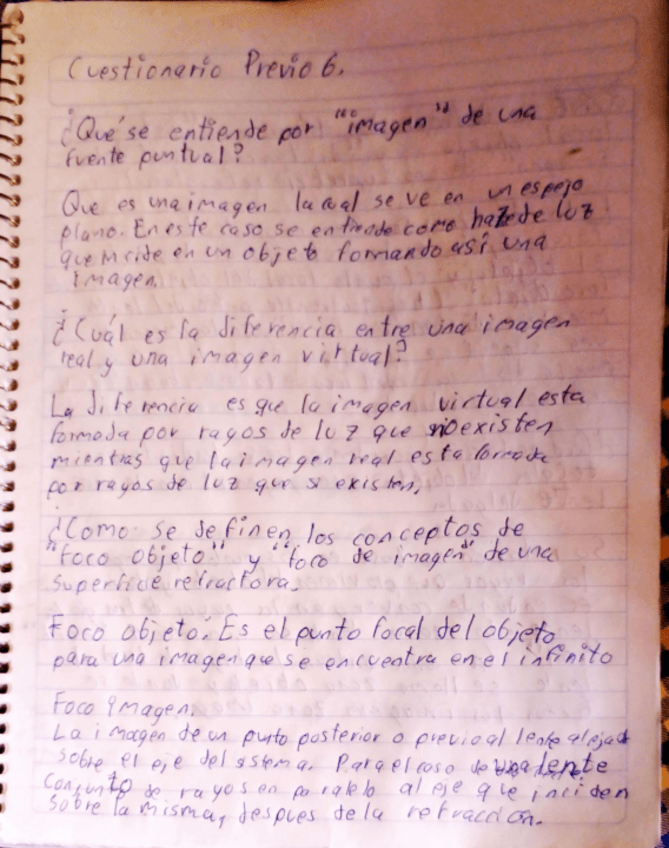 Cuestionario Previo 6.
¿Qué se entiende por "imagen" de una
fuente puntual?
Que es una imagen la cual se ve en un espejo
plano. En este caso se entiende como haz de luz
que incide en un objeto formando así una
imagen
¿Cuál es la diferencia entre una imagen
real y una imagen virtual?
La diferencia es que la imagen virtual esta
formada por rayos de luz que no existen
mientras que la imagen real esta formada
por rayos de luz que si existen,
¿Como se definen los conceptos de
"foco objeto" y "foco de imagen" de una
superficie refractora.
Foco objeto: Es el punto focal del objeto
para una imagen que se encuentra en el infinito
Foco imagen.
La imagen de un punto posterior o previo al lente alejado
sobre el eje del sistema. Para el caso de una lente
conjunto de rayos en paralelo al eje que inciden
sobre la misma, despues de la refracción.